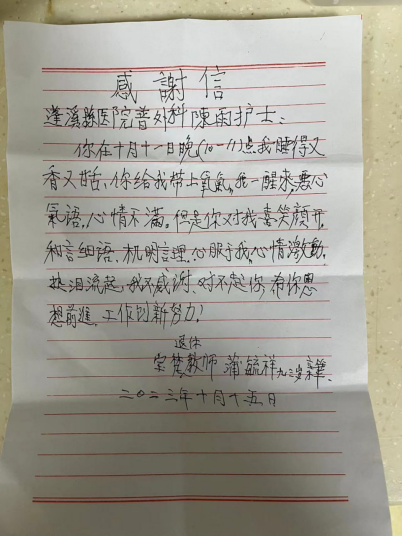 感謝信
蓬溪縣医院普外科陳雨护士：
你在十月十一日晚(10-11)点我睡得又
香又甜，你给我带上氧氣，我一醒來，惡心
氣语，心情不滿，但是你对我喜笑顏开，
和言细语、机明言理，心服于我，心情激動，
热泪流起，我不感谢、对不起你，希你思
想前進，工作创新努力！
退休
教师 蒲毓祥 九三岁
二〇二三年十月十五日